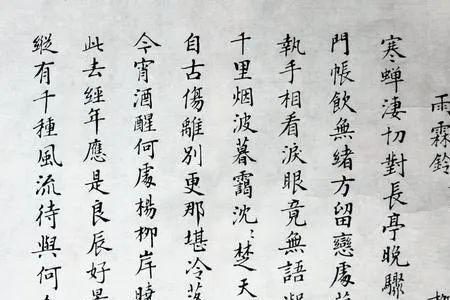 雨霖鈴
寒蟬淒切對長亭晚驟
門帳飲無緒方留戀處
執手相看淚眼竟無語
千里烟波暮靄沈〻楚天
自古傷離別更那堪冷落
今宵酒醒何處楊柳岸曉
此去經年應是良辰好景
縱有千種風流待與何